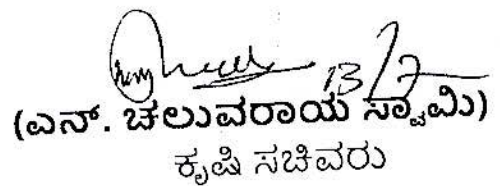 13/7
(ಎನ್. ಚಲುವರಾಯ ಸ್ವಾಮಿ)
ಕೃಷಿ ಸಚಿವರು